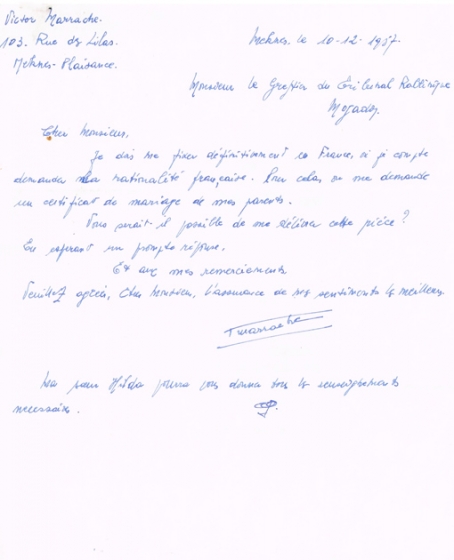 Victor Marrache.
103. Rue des Lilas.
Meknes-Plaisance.
Meknes. le 10-12-1957.
Monsieur le Greffier du Tribunal Rabbinique
Mogador.
Cher Monsieur,
Je dois me fixer définitivement en France, où je compte
demander la nationalité française. Pour cela, on me demande
un certificat de mariage de mes parents.
Vous serait-il possible de me délivrer cette pièce?
En espérant une prompte réponse,
Et avec mes remerciements
Veuillez agréer, Cher Monsieur, l'assurance de mes sentiments les meilleurs
Marrache
Ma sœur Hilda pourra vous donner tous les renseignements
nécessaires.